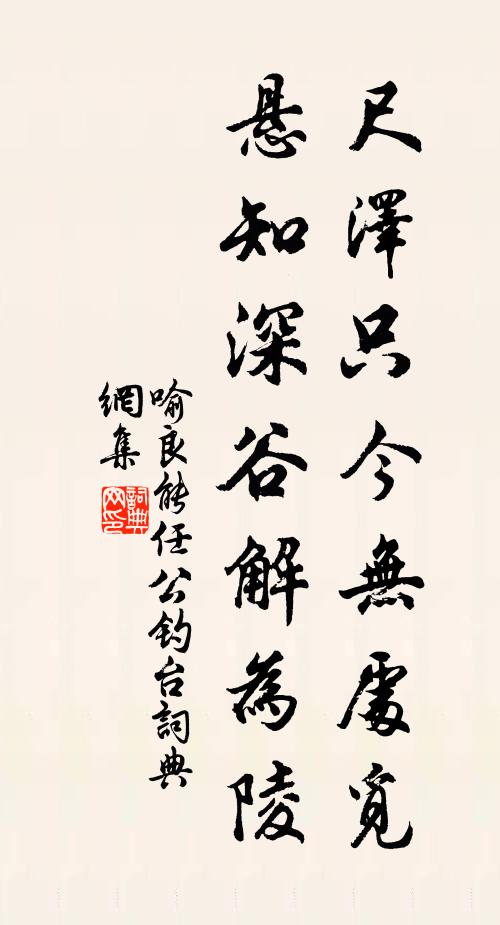 尺澤只今無處覓
懸知深谷解為陵
喻良能任公釣台詞典
網集
詞典
网印